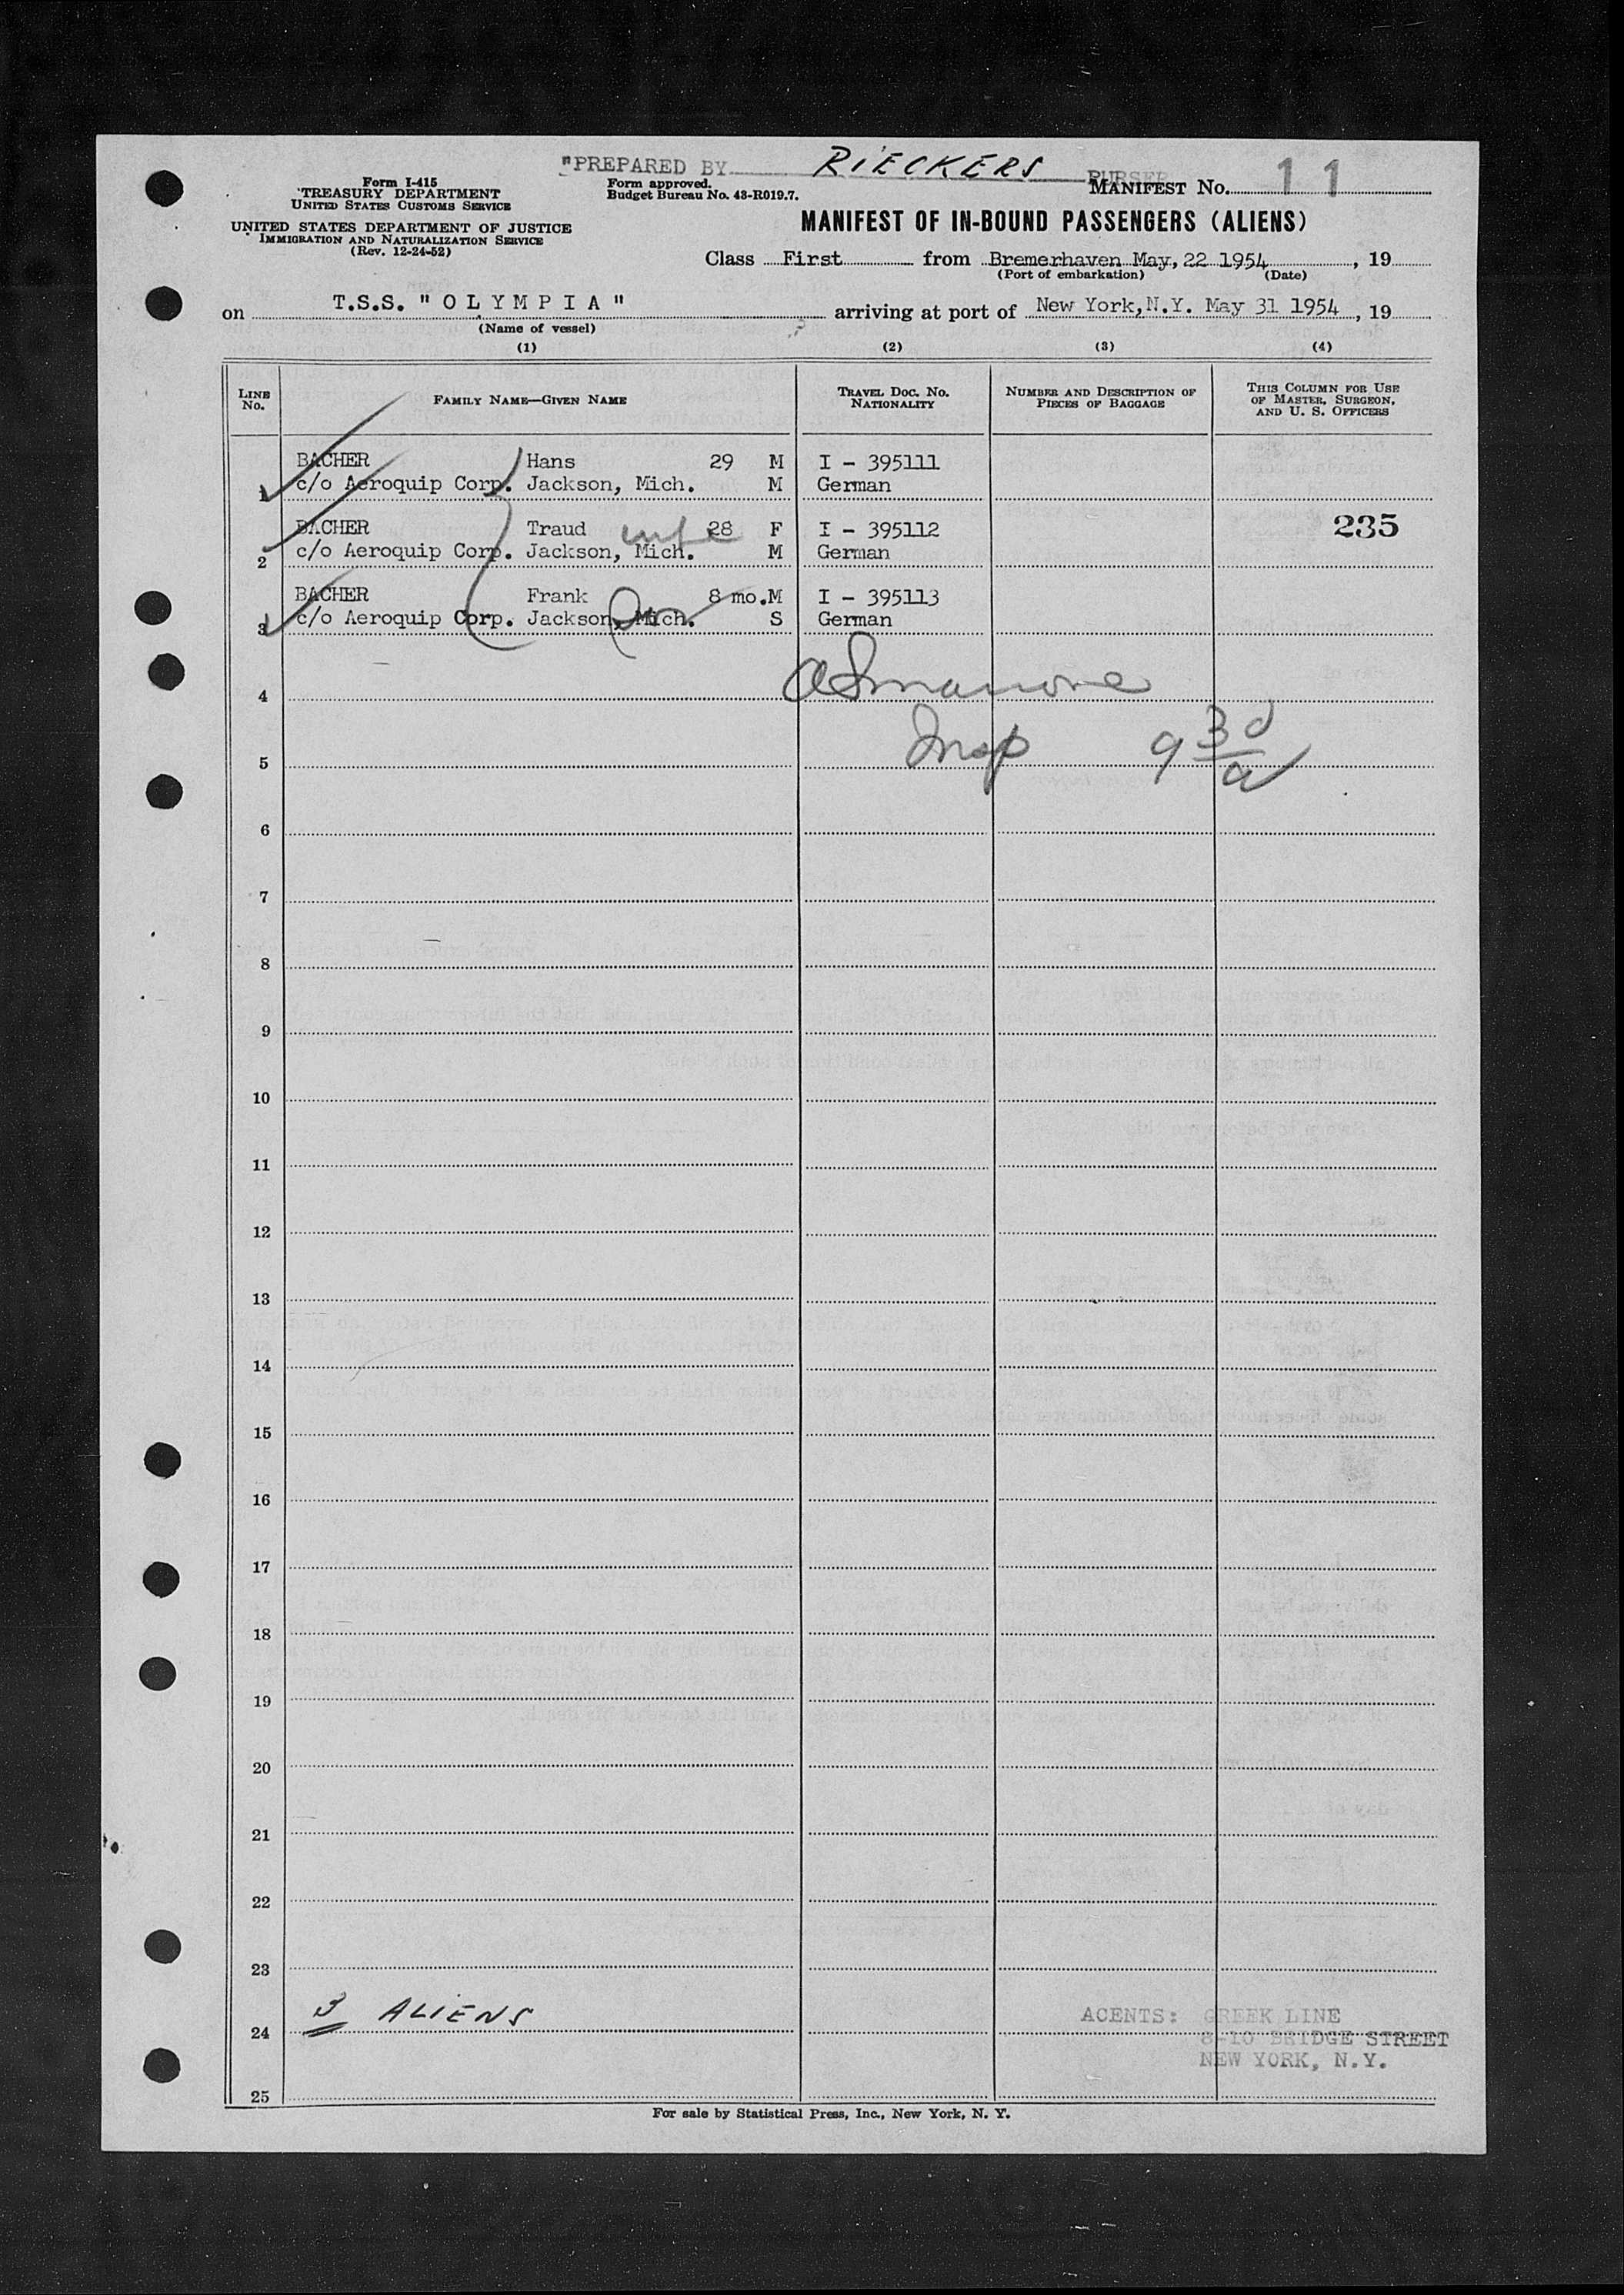 "PREPARED BY RIECKERS PURSER
Form I-415
TREASURY DEPARTMENT
UNITED STATES CUSTOMS SERVICE
Form approved.
Budget Bureau No. 43-R019.7.
MANIFEST No. 11
UNITED STATES DEPARTMENT OF JUSTICE
IMMIGRATION AND NATURALIZATION SERVICE
(Rev. 12-24-52)
MANIFEST OF IN-BOUND PASSENGERS (ALIENS)
Class First from Bremerhaven May, 22 1954, 19
(Port of embarkation) (Date)
on T.S.S. "OLYMPIA" arriving at port of New York, N.Y. May 31 1954, 19
(Name of vessel)
(1) (2) (3) (4)
LINE No. FAMILY NAME—GIVEN NAME TRAVEL DOC. NO. NATIONALITY NUMBER AND DESCRIPTION OF PIECES OF BAGGAGE THIS COLUMN FOR USE OF MASTER, SURGEON, AND U. S. OFFICERS
BACHER Hans 29 M I - 395111
1 c/o Aeroquip Corp. Jackson, Mich. M German
BACHER Traud wife 28 F I - 395112 235
2 c/o Aeroquip Corp. Jackson, Mich. M German
BACHER Frank 8 mo. M I - 395113
3 c/o Aeroquip Corp. Jackson, Mich. S German
4
5 Insp 9 30/a
6
7
8
9
10
11
12
13
14
15
16
17
18
19
20
21
22
23
3 ALIENS ACENTS: GREEK LINE
24 8-10 BRIDGE STREET
NEW YORK, N.Y.
25
For sale by Statistical Press, Inc., New York, N. Y.